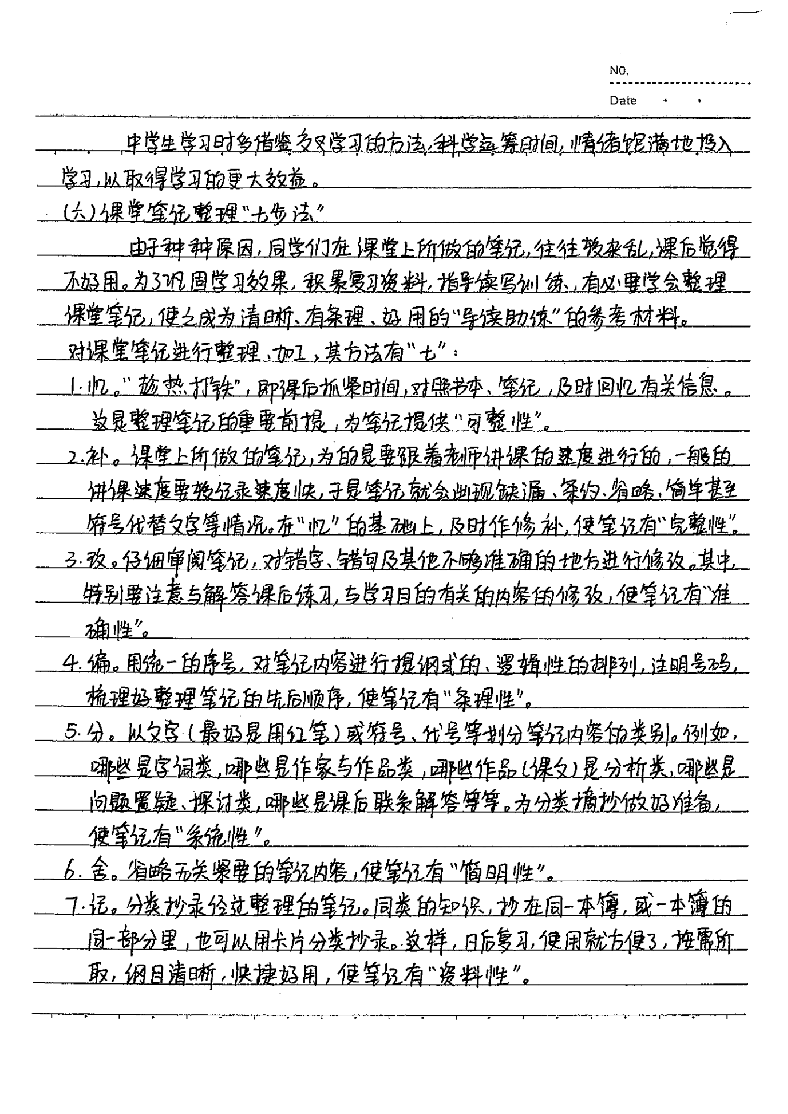 NO.
Date
中学生学习时多借鉴交叉学习的方法,科学运筹时间,情绪饱满地投入
学习,以取得学习的更大效益。
(六)课堂笔记整理“七步法”
由于种种原因,同学们在课堂上所做的笔记,往往较杂乱,课后觉得
不好用。为了巩固学习效果,积累复习资料,指导读写训练,有必要学会整理
课堂笔记,使之成为清晰、有条理、好用的“导读助练”的参考材料。
对课堂笔记进行整理、加工,其方法有“七”:
1.忆。“趁热打铁”,即课后抓紧时间,对照书本、笔记,及时回忆有关信息。
这是整理笔记的重要前提,为笔记提供“可整性”。
2.补。课堂上所做的笔记,为的是要跟着老师讲课的速度进行的,一般的
讲课速度要较记录速度快,于是笔记就会出现缺漏、条约、省略、简单甚至
符号代替文字等情况。在“忆”的基础上,及时作修补,使笔记有“完整性”。
3.改。仔细审阅笔记,对错字、错句及其他不够准确的地方进行修改。其中,
特别要注意与解答课后练习,与学习目的有关的内容的修改,使笔记有“准
确性”。
4.偏。用统一的序号,对笔记内容进行提纲式的、逻辑性的排列,注明号码,
梳理好整理笔记的先后顺序,使笔记有“条理性”。
5.分。以文字(最好是用红笔)或符号、代号等划分笔记内容的类别。例如,
哪些是字词类,哪些是作家与作品类,哪些作品(课文)是分析类,哪些是
问题置疑、探讨类,哪些是课后联系解答等等。为分类摘抄做好准备,
使笔记有“系统性”。
6.舍。省略无关紧要的笔记内容,使笔记有“简明性”。
7.记。分类抄录经过整理的笔记。同类的知识,抄在同一本簿,或一本簿的
同一部分里,也可以用卡片分类抄录。这样,日后复习,使用就方便了,按需所
取,纲目清晰,快捷好用,使笔记有“资料性”。